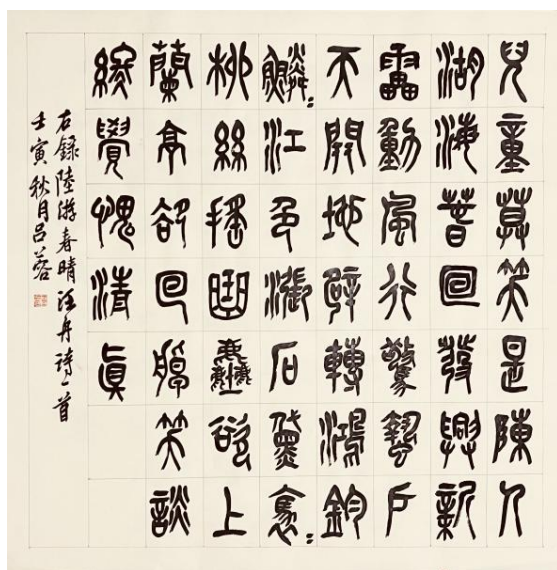 兒童莫笑是陳人
湖海春回發興新
靁動風行驚蟄戶
天開地辟轉鴻鈞
鱗〻江色漲石黛裊〻
柳絲搖麴塵欲上
蘭亭卻回棹笑談
終覺愧清眞
右錄陸游春晴泛舟詩一首
壬寅秋月呂蓉